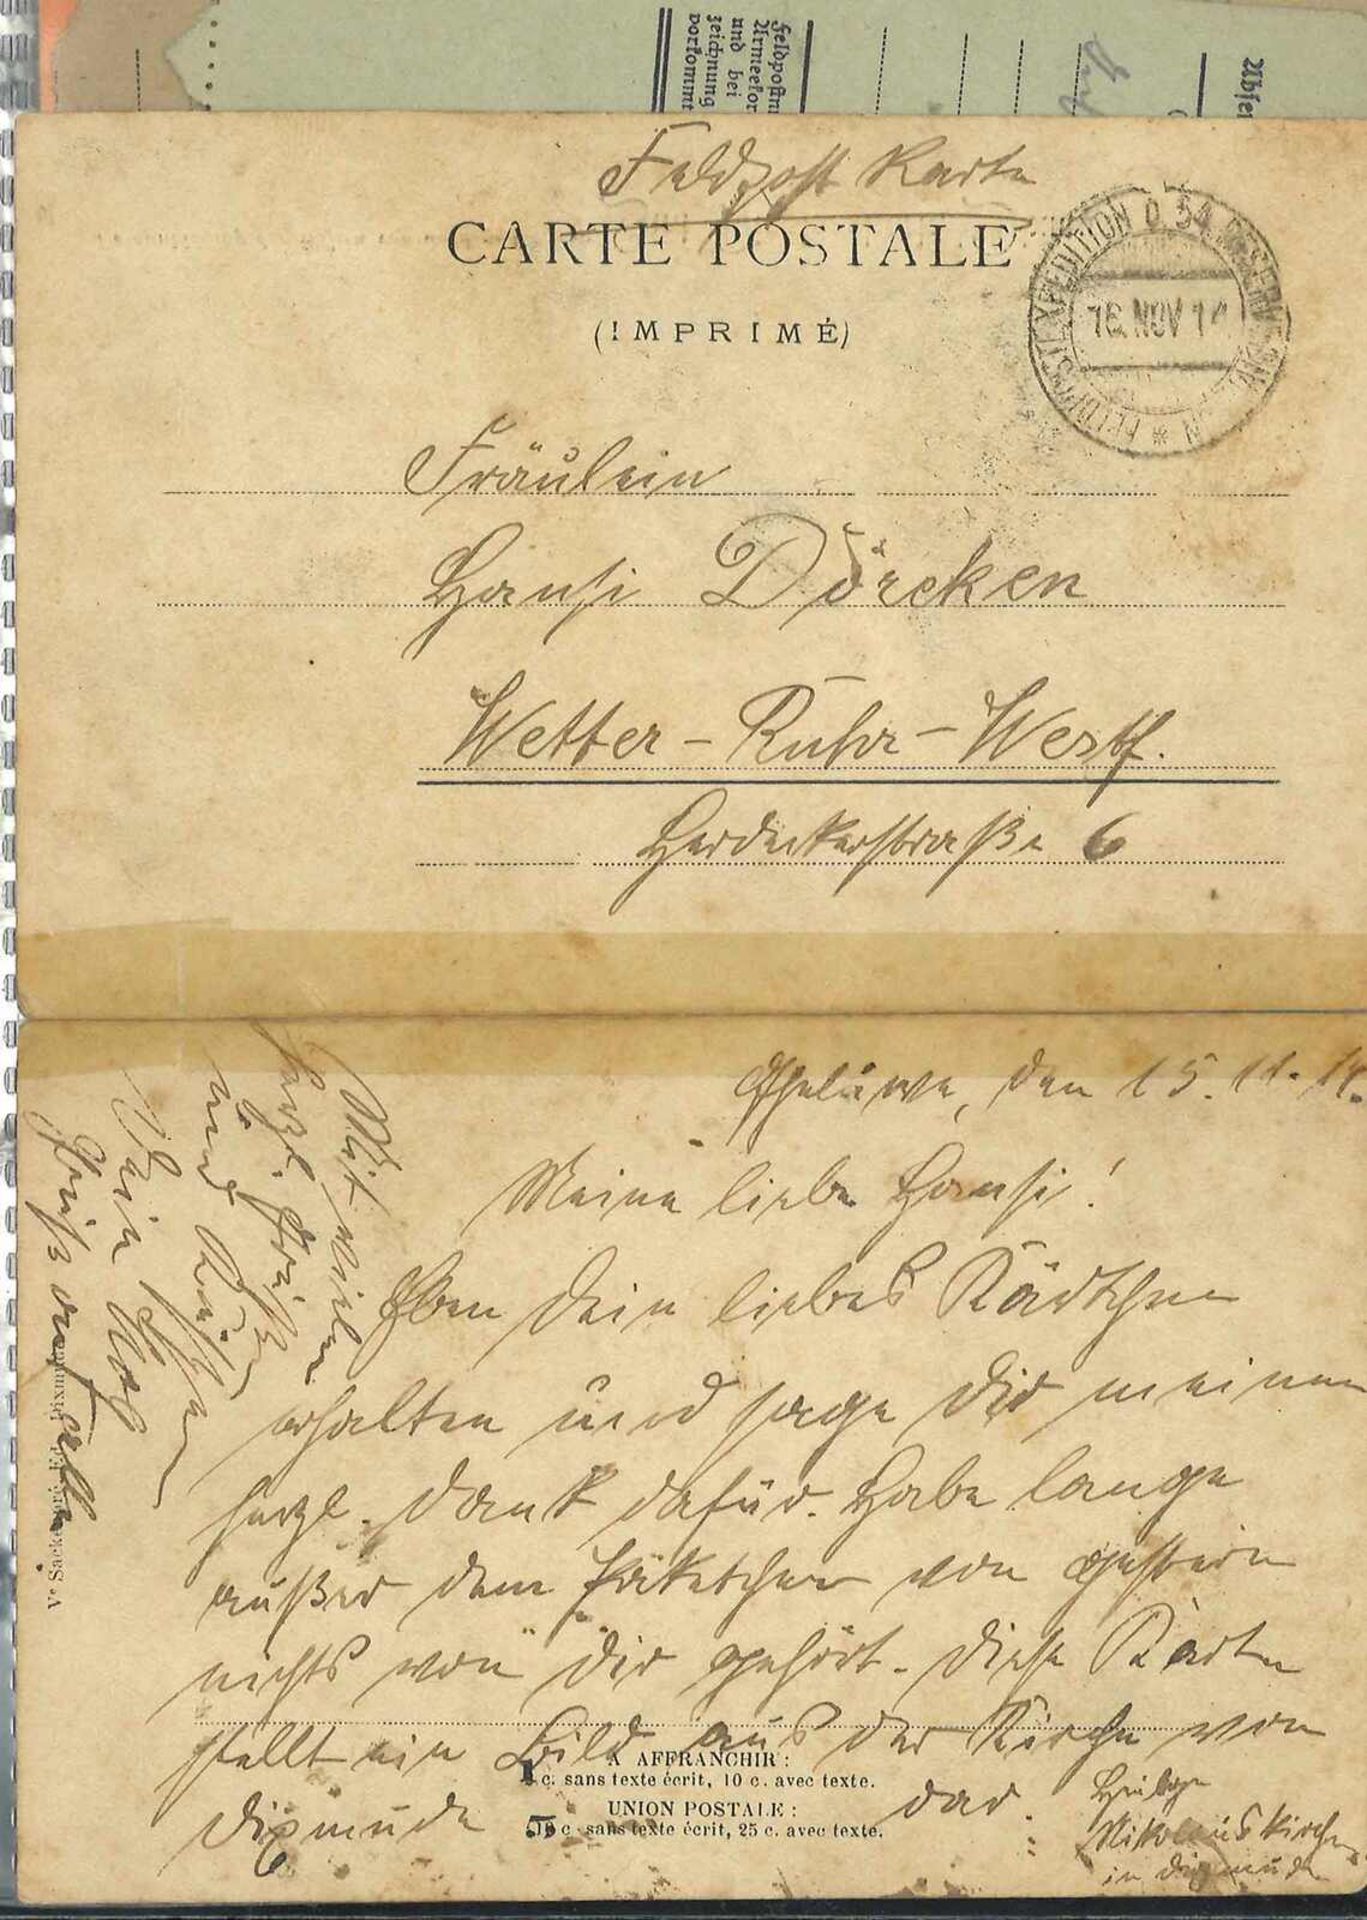 Feldpostnu
Armeekor
und bei
zeichnung
vorkommt
Absen
Feldpost Karte
CARTE POSTALE
(IMPRIMÉ)
FELDPOSTEXPEDITION D 54. RESERVE DIV
NOV 14
Fräulein
Hansi Dörcken
Wetter - Ruhr - Westf.
Herdeckerstraße 6
Gheluwe, den 15. 11. 14.
Meine liebe Hansi!
Eben Dein liebes Kärtchen
erhalten und sage Dir meinen
herzl. Dank dafür. Habe lange
außer dem Paketchen von gestern
nichts von Dir gehört. Diese Karte
stellt ein Bild aus der Kirche von
Dixmude dar.
Heilige
Nikolaus Kirche
in Dixmude
Mit vielen
herzl. Grüßen
und Küssen
Dein
Gruß an alle
A AFFRANCHIR:
c. sans texte écrit, 10 c. avec texte.
UNION POSTALE:
5 c. sans texte écrit, 25 c. avec texte.